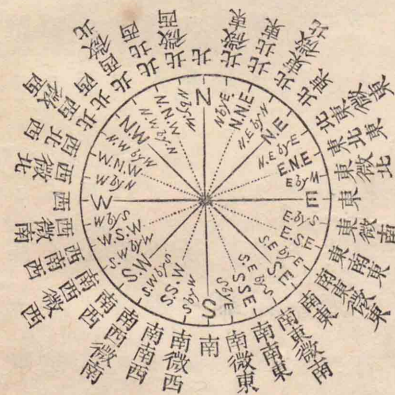 北
北微東
北北東
北東微北
北東
北東微東
東北東
東微北
東
東微南
東南東
南東微東
南東
南東微南
南南東
南微東
南
南微西
南南西
南西微南
南西
南西微西
西南西
西微南
西
西微北
西北西
北西微西
北西
北西微北
北北西
北微西
N
N by E
N.N.E
N.E by N
N.E
N.E by E
E.N.E
E by N
E
E by S
E.S.E
S.E by E
S.E
S.E by S
S.S.E
S by E
S
S by W
S.S.W
S.W by S
S.W
S.W by W
W.S.W
W by S
W
W by N
W.N.W
N.W by W
N.W
N.W by N
N.N.W
N by W